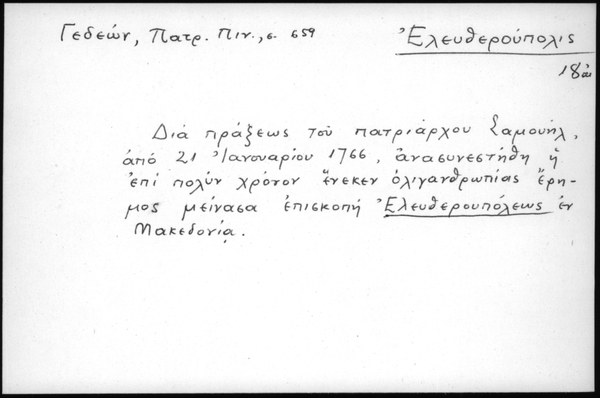 Γεδεών, Πατρ. Πιν., σ. 659
Ἐλευθερούπολις
18ου αἰ
Διὰ πράξεως τοῦ πατριάρχου Σαμουήλ,
ἀπό 21 Ἰανουαρίου 1766, ἀνασυνεστήθη ἡ
ἐπί πολύν χρόνον ἕνεκεν ὀλιγανθρωπίας ἔρη-
μος μείνασα ἐπισκοπή Ἐλευθερουπόλεως ἐν
Μακεδονίᾳ.